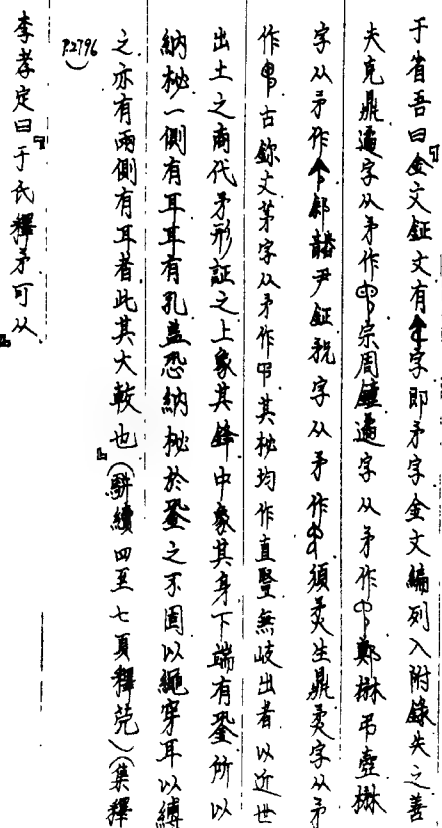 于省吾曰『金文鉦文有字即矛字金文編列入附錄失之善
夫克鼎遹字从矛作宗周鐘遹字从矛作鄭楙弔壺楙
字从矛作䣄諧尹鉦字从矛作須炱生鼎炱字从矛
作古鉨文茅字从矛作其柲均作直豎無岐出者以近世
出土之商代矛形証之上象其鋒中象其身下端有銎所以
納柲一側有耳耳有孔蓋恐納柲於銎之不固以繩穿耳以縛
之亦有兩側有耳者此其大較也』(駢續四至七頁釋)(集釋
P.2796)
李孝定曰『于氏釋矛可从』